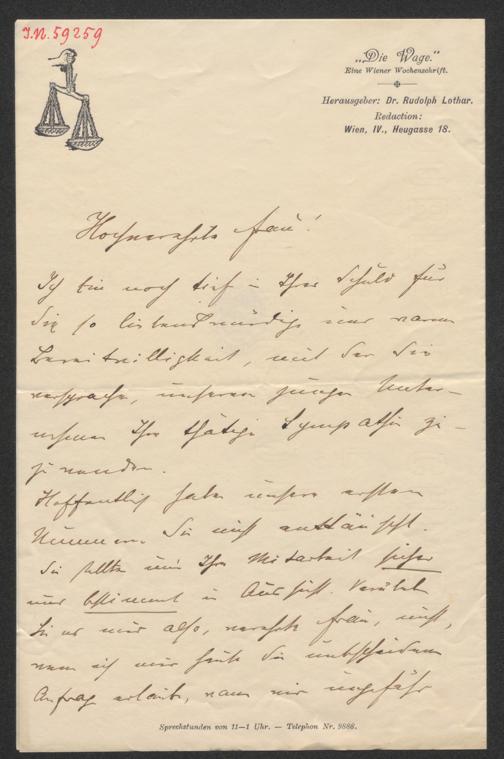 I.N. 59259
„Die Wage."
Eine Wiener Wochenschrift.
Herausgeber: Dr. Rudolph Lothar.
Redaction:
Wien, IV., Heugasse 18.
Hochverehrte Frau!
Ich bin noch tief in Ihrer Schuld für
die so liebenswürdige und warme
Bereitwilligkeit, mit der Sie
versprachen, unserem jungen Unter-
nehmen Ihre thätige Sympathie zu-
zuwenden.
Hoffentlich haben unsere ersten
Nummern Sie nicht enttäuscht.
Sie stellten mir Ihre Mitarbeit sicher
und bestimmt in Aussicht. Verübeln
Sie es mir also, verehrte Frau, nicht,
wenn ich mir heute die unbescheidene
Anfrage erlaube, wann wir ungefähr
Sprechstunden von 11—1 Uhr. — Telephon Nr. 9888.